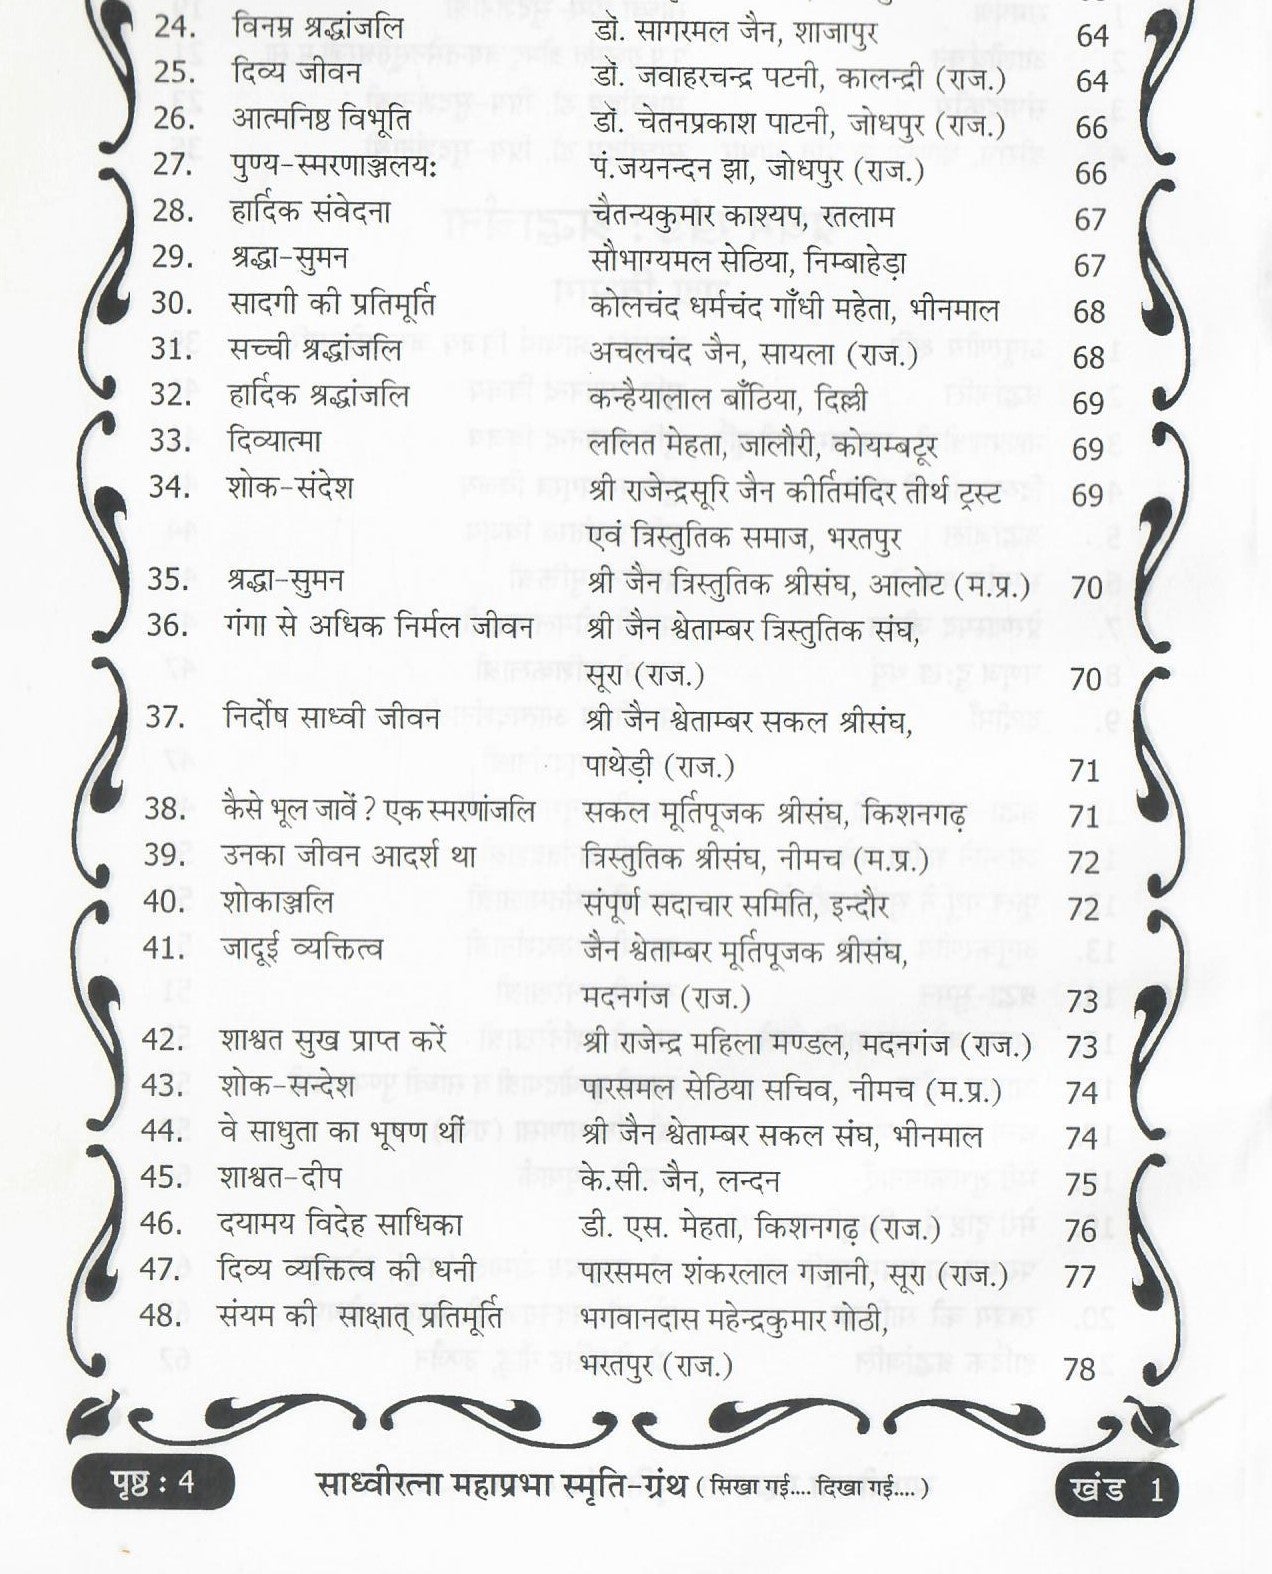 24. विनम्र श्रद्धांजलि डॉ. सागरमल जैन, शाजापुर 64
25. दिव्य जीवन डॉ. जवाहरचन्द्र पटनी, कालन्द्री (राज.) 64
26. आत्मनिष्ठ विभूति डॉ. चेतनप्रकाश पाटनी, जोधपुर (राज.) 66
27. पुण्य-स्मरणाञ्जलयः पं.जयनन्दन झा, जोधपुर (राज.) 66
28. हार्दिक संवेदना चैतन्यकुमार काश्यप, रतलाम 67
29. श्रद्धा-सुमन सौभाग्यमल सेठिया, निम्बाहेड़ा 67
30. सादगी की प्रतिमूर्ति कोलचंद धर्मचंद गाँधी महेता, भीनमाल 68
31. सच्ची श्रद्धांजलि अचलचंद जैन, सायला (राज.) 68
32. हार्दिक श्रद्धांजलि कन्हैयालाल बाँठिया, दिल्ली 69
33. दिव्यात्मा ललित मेहता, जालौरी, कोयम्बटूर 69
34. शोक-संदेश श्री राजेन्द्रसूरि जैन कीर्तिमंदिर तीर्थ ट्रस्ट 69
एवं त्रिस्तुतिक समाज, भरतपुर
35. श्रद्धा-सुमन श्री जैन त्रिस्तुतिक श्रीसंघ, आलोट (म.प्र.) 70
36. गंगा से अधिक निर्मल जीवन श्री जैन श्वेताम्बर त्रिस्तुतिक संघ,
सूरा (राज.) 70
37. निर्दोष साध्वी जीवन श्री जैन श्वेताम्बर सकल श्रीसंघ,
पाथेड़ी (राज.) 71
38. कैसे भूल जावें? एक स्मरणांजलि सकल मूर्तिपूजक श्रीसंघ, किशनगढ़ 71
39. उनका जीवन आदर्श था त्रिस्तुतिक श्रीसंघ, नीमच (म.प्र.) 72
40. शोकाञ्जलि संपूर्ण सदाचार समिति, इन्दौर 72
41. जादूई व्यक्तित्व जैन श्वेताम्बर मूर्तिपूजक श्रीसंघ,
मदनगंज (राज.) 73
42. शाश्वत सुख प्राप्त करें श्री राजेन्द्र महिला मण्डल, मदनगंज (राज.) 73
43. शोक-सन्देश पारसमल सेठिया सचिव, नीमच (म.प्र.) 74
44. वे साधुता का भूषण थीं श्री जैन श्वेताम्बर सकल संघ, भीनमाल 74
45. शाश्वत-दीप के.सी. जैन, लन्दन 75
46. दयामय विदेह साधिका डी. एस. मेहता, किशनगढ़ (राज.) 76
47. दिव्य व्यक्तित्व की धनी पारसमल शंकरलाल गजानी, सूरा (राज.) 77
48. संयम की साक्षात् प्रतिमूर्ति भगवानदास महेन्द्रकुमार गोठी,
भरतपुर (राज.) 78
पृष्ठ : 4 साध्वीरत्ना महाप्रभा स्मृति-ग्रंथ (सिखा गई.... दिखा गई....) खंड 1